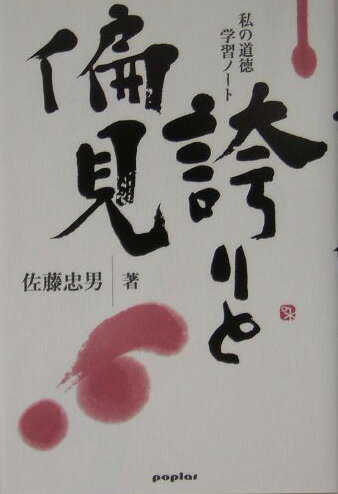 誇りと
偏見
私の道徳
学習ノート
佐藤忠男 著
poplar